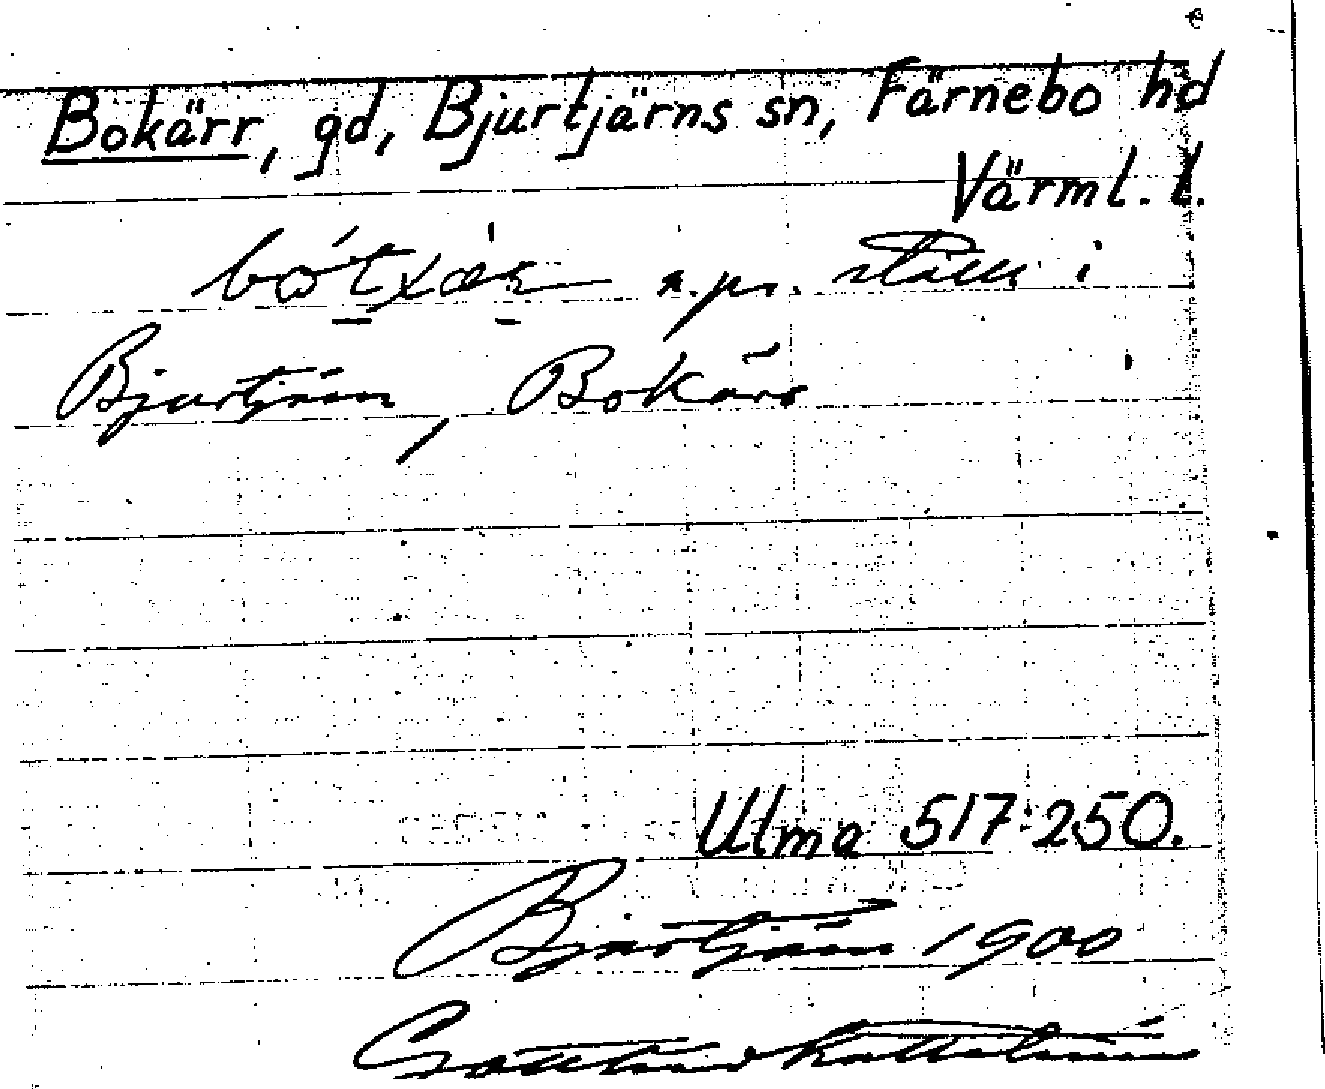 Bokärr, gd, Bjurtjärns sn, Färnebo hd
Värml. l.
n. pr. ställe i
Bjurtjärn, Bokärr
Ulma 517:250.
Bjurtjärn 1900
Gottfrid Kallstenius